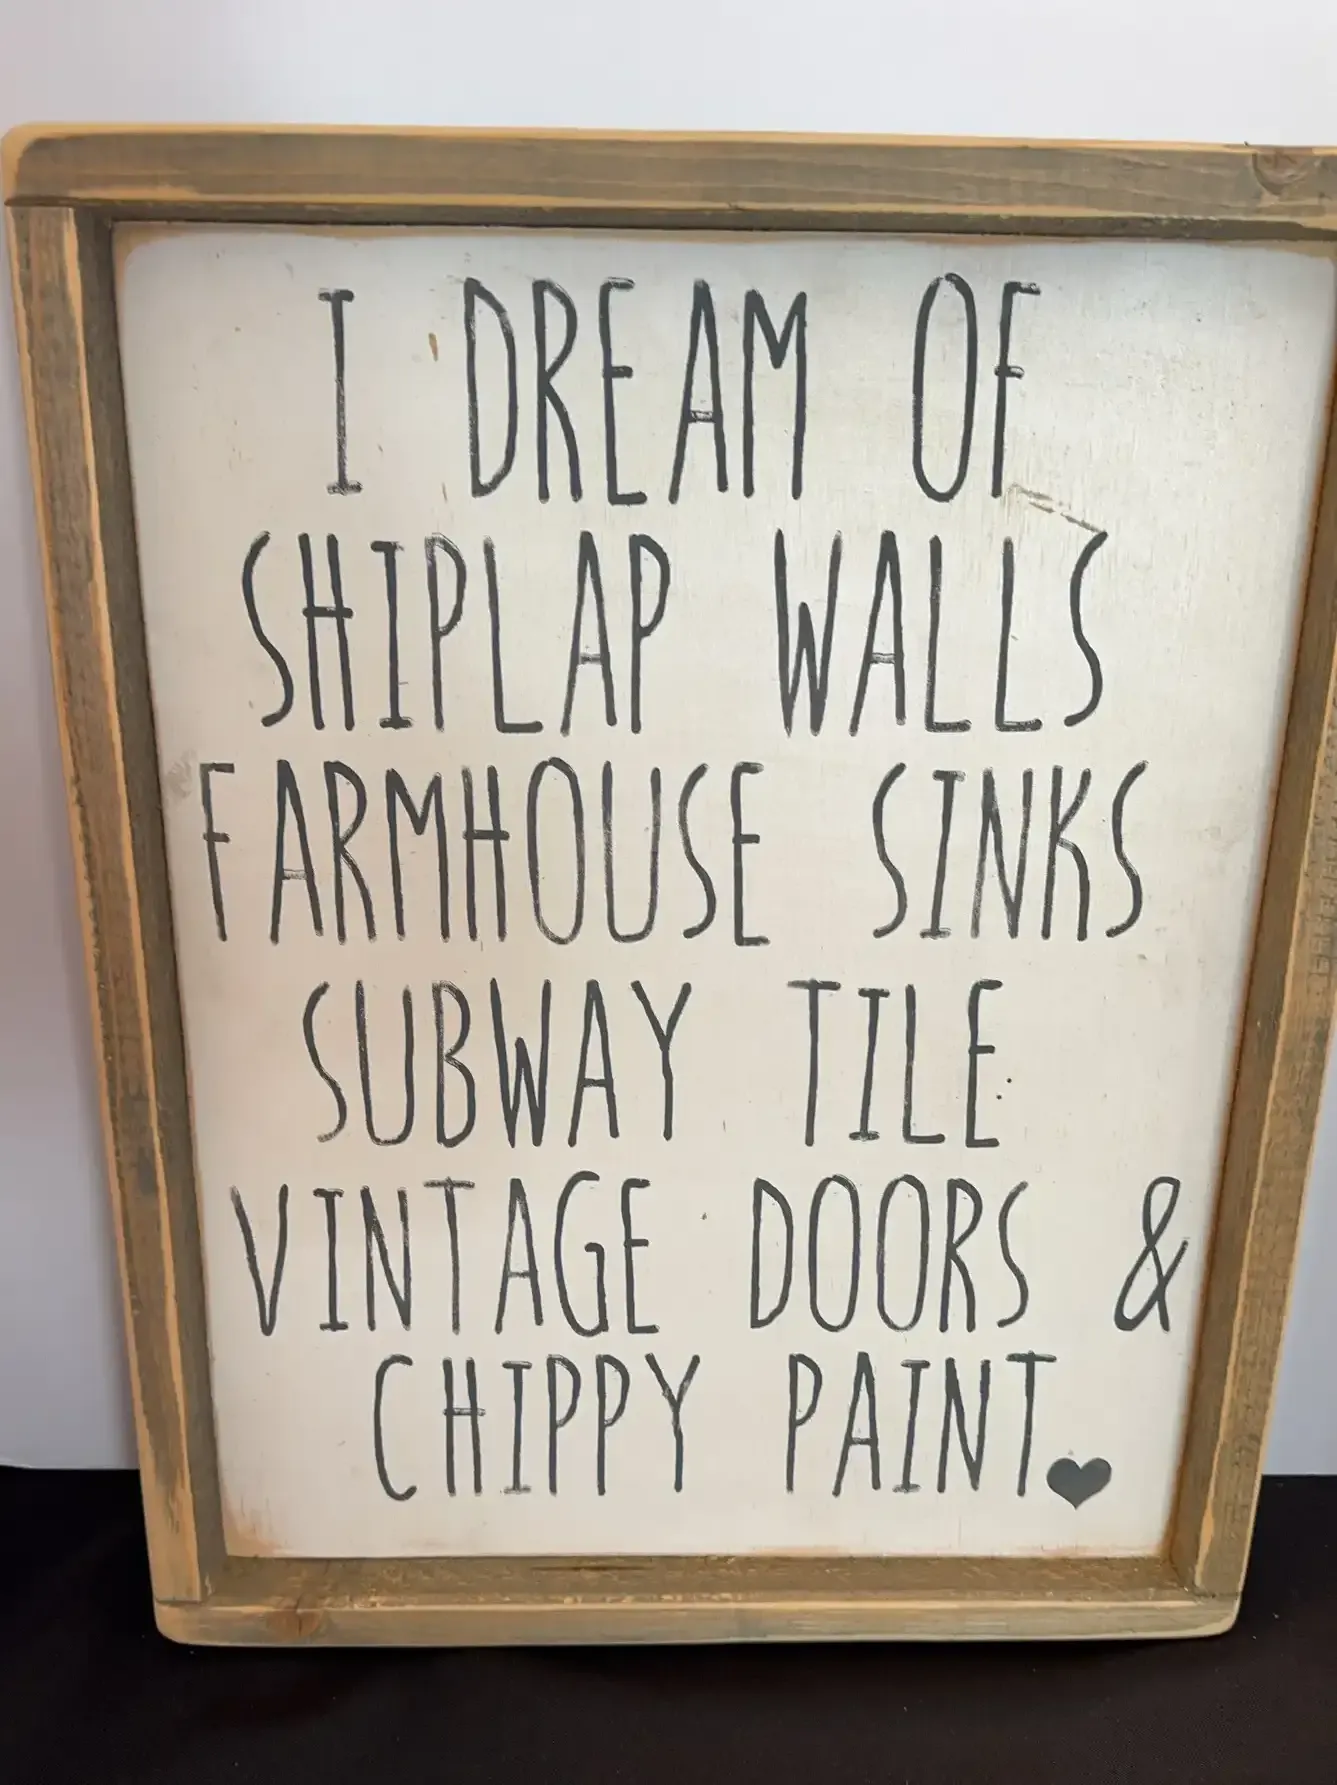 I DREAM OF
SHIPLAP WALLS
FARMHOUSE SINKS
SUBWAY TILE
VINTAGE DOORS &
CHIPPY PAINT